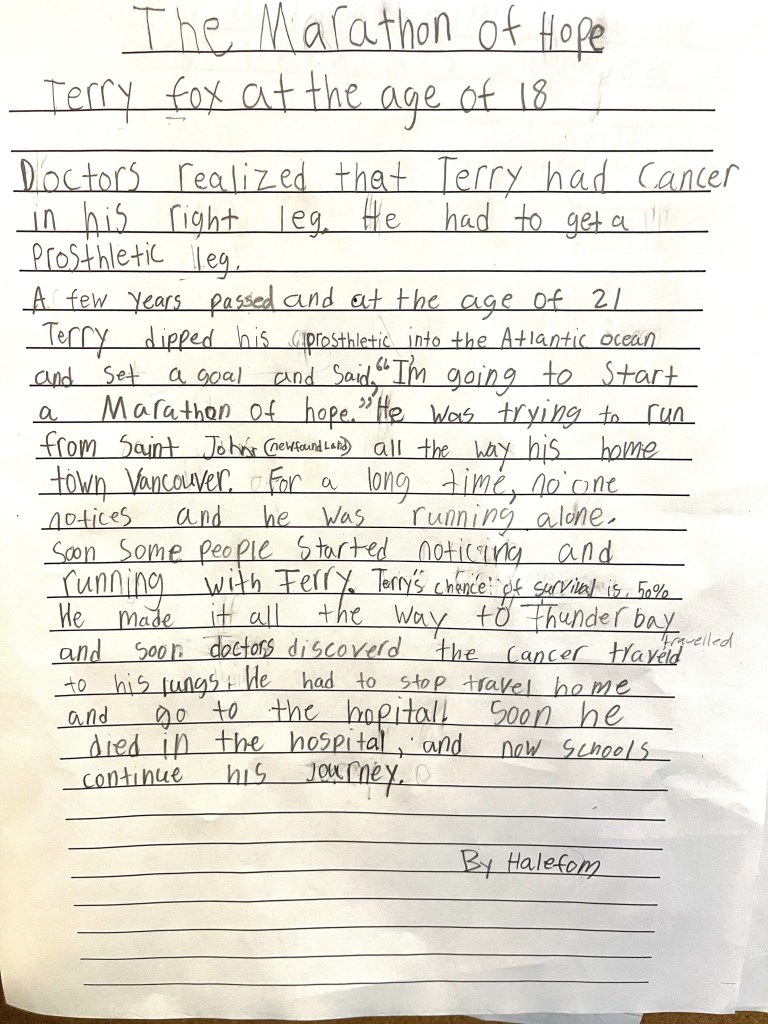 The Marathon of Hope
Terry fox at the age of 18
Doctors realized that Terry had Cancer
in his right leg. He had to get a
Prosthletic leg.
A few years passed and at the age of 21
Terry dipped his prosthletic into the Atlantic ocean
and set a goal and said, "I'm going to Start
a Marathon of hope." He was trying to run
from Saint John's (newfoundLand) all the way his home
town Vancouver. For a long time, no one
notices and he was running alone.
soon some people Started noticing and
running with Terry. Terry's chance of survival is 50%
He made it all the way to Thunder bay
and soon doctors discoverd the cancer traveld travelled
to his lungs. He had to stop travel home
and go to the hopitall Soon he
died in the hospital, and now schools
continue his Journey.
By Halefom